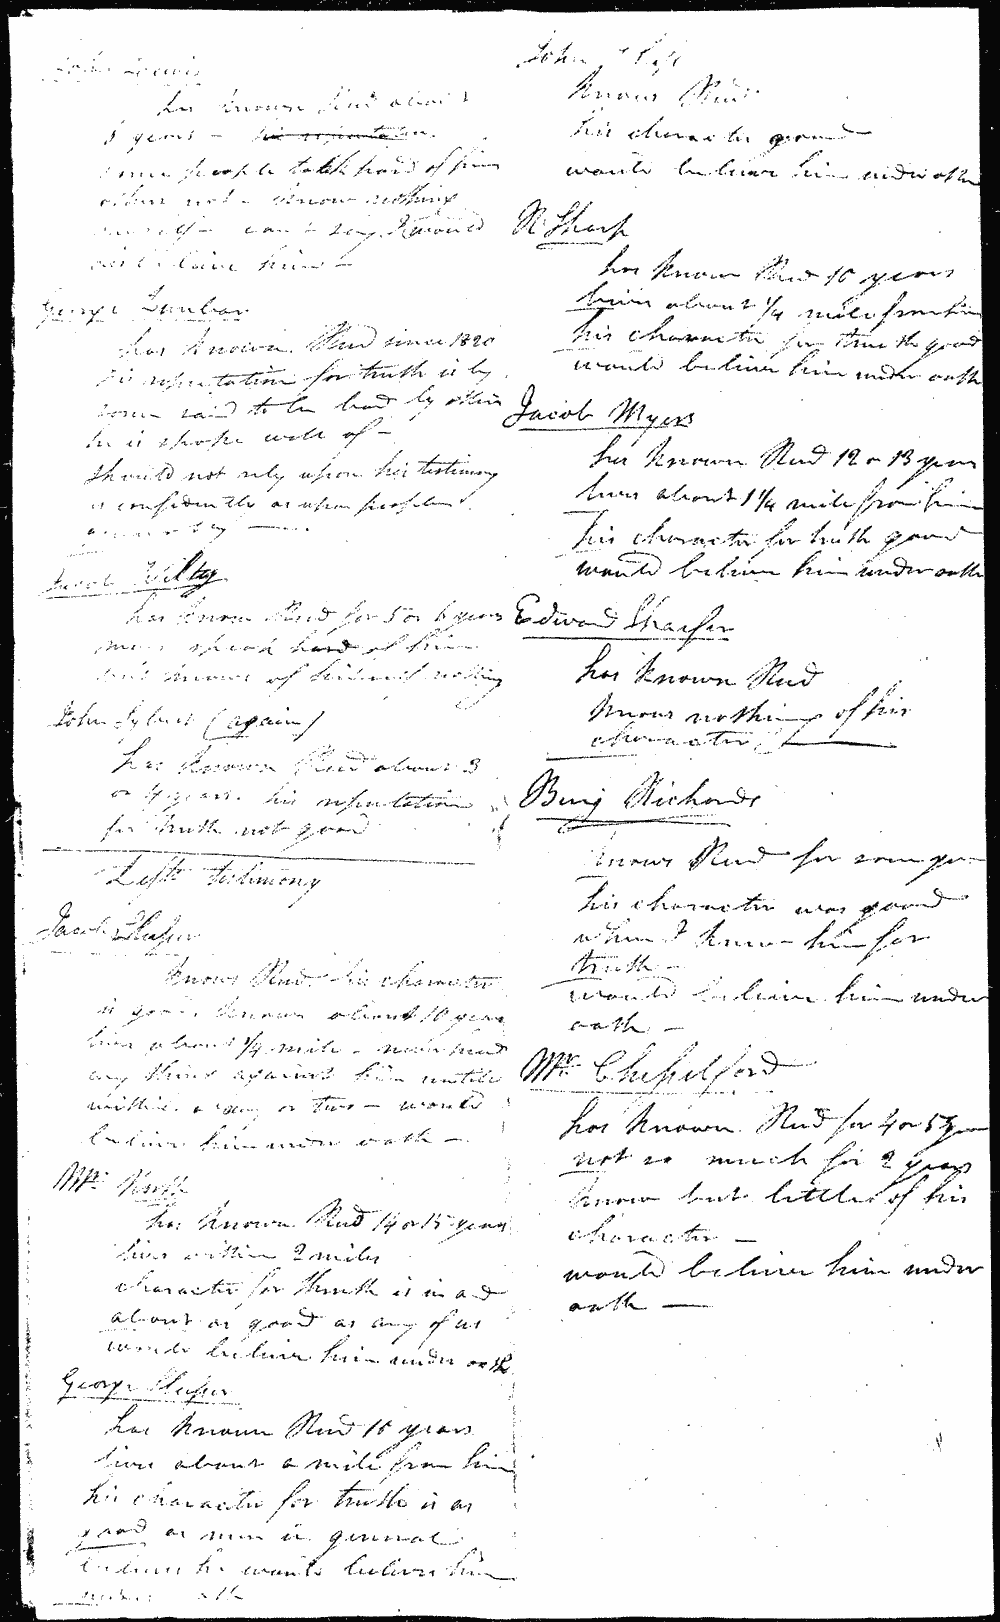 John Lewis
has known Rud about
5 years – his reputation
some people talk hard of him
others not – know nothing
myself – can't say I would
not believe him –
George Dunbar
has known Rud since 1820
his reputation for truth is by
some said to be bad by others
he is spoke well of –
should not rely upon his testimony
as confidently as upon people
Jacob Wiltey
has known Rud for 5 or 6 years
speak hard of him
but knows of himself nothing
John Sybert (again)
has known Rud about 3
or 4 years. his reputation
for truth not good
testimony
Jacob Slusser
knows Rud his character
is good. known about 10 years
lives about 1/4 mile – never heard
any thing against him untill
within a day or two – would
believe him under oath –
Mr.
has known Rud 14 or 15 years
lives within 2 miles
character for thruth is
about as good as any of us
would believe him under oath
George Slusser
has known Rud 10 years
lives about a mile from him
his character for truth is as
good as men in general
believes he would believe him
under oath
John
knows Rud
his character good –
would believe him under oath
R Sharp
has known Rud 10 years
lives about 1/4 mile from him
his character for thruth good
would believe him under oath
Jacob Myers
has known Rud 12 or 13 years
lives about 1 1/4 mile from him
his character for truth good
would believe him under oath
Edward Shaefer
has known Rud
knows nothing of his
character
Benj Richards
knows Rud for some
his character was good
when I knew him for
truth –
would believe him under
oath –
Mr. Chepelford
has known Rud for 4 or 5 years
not so much for 2 years
know but little of his
character –
would believe him under
oath –